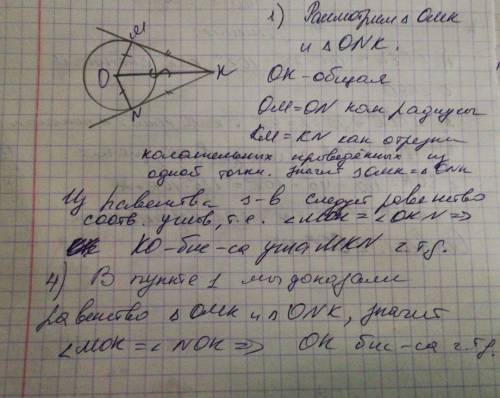 M
O
K
N
1) Рассмотрим △ OMK
и △ ONK.
OK - общая
OM = ON как радиусы
KM = KN как отрезки
касательных проведённых из
одной точки. Значит △OMK = △ONK
Из равенства з-в следует равенство
соотв. углов, т.е. ∠MOK = ∠OKN =>
KO - бис-са угла MKN ч.т.д.
4) В пункте 1 мы доказали
равенство △ OMK и △ ONK, значит
∠MOK = ∠NOK => OK бис-са ч.т.д.